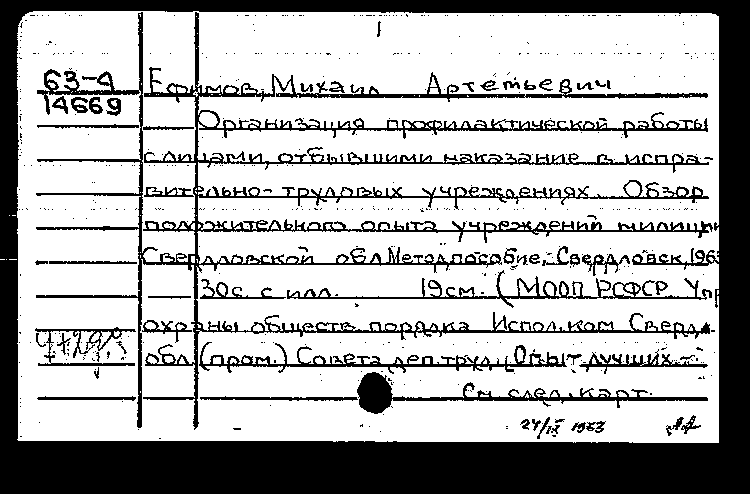 1
63-4 Ефимов, Михаил Артемьевич
14669
Организация профилактической работы
с лицами, отбывшими наказание в испра-
вительно-трудовых учреждениях. Обзор
положительного опыта учреждений милиции
Свердловской обл Метод.пособие, Свердловск, 1963
30с. с илл. 19см. (МООП РСФСР. Упр
охраны обществ. порядка Исполком Свердл.
обл. (пром.) Совета деп. труд. Опыт лучших -
См. след. карт.
24/IX 1963